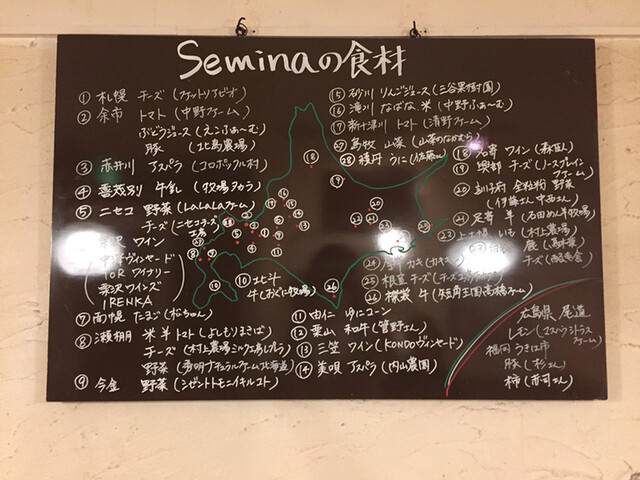 Seminaの食材
① 札幌 チーズ (ファットリアビオ)
② 余市 トマト (中野ファーム)
ぶどうジュース (えこふぁーむ)
豚 (北島農場)
③ 赤井川 アスパラ (コロポックル村)
④ 喜茂別 牛乳 (牧場タカラ)
⑤ ニセコ 野菜 (LaLaLaファーム)
チーズ (ニセコチーズ工房)
ワイン
中井ヴィンヤード
10R ワイナリー
栗沢ワインズ
IRENKA
⑦ 南幌 たまご
⑧ 瀬棚 米 羊 トマト (よしもりまきば)
チーズ (村上農場ミルク工房レプレラ)
野菜 (秀明ナチュラルファーム北海道)
⑨ 今金 野菜 (シゼントトモニイキルコト)
⑩ 北斗
牛 (おぐに牧場)
⑪ 由仁 ゆにコーン
⑫ 葉山 和牛 (菅野さん)
⑬ 三笠 ワイン (KONDOヴィンヤード)
⑭ 美唄 アスパラ (内山農園)
⑮ 砂川 リンゴジュース (三谷果樹園)
⑯ 滝川 なばな、米 (中野ふぁーむ)
⑰ 新十津川 トマト (清野ファーム)
㉗ 島牧 山菜 (山菜のなかむら)
㉘ 積丹 うに
⑱ 名寄 ワイン (森臥)
⑲ 興部 チーズ (ノースプレインファーム)
⑳ 全粒粉 野菜
(伊藤さん 中西さん)
㉑ 足寄 羊 (石田めん羊牧場)
いも (村上農場)
㉕ 根室 チーズ
㉖ 様似 牛 (短角王国高橋ファーム)
広島県 尾道
レモン (シトラスファーム)
福岡 うきは市
豚 (杉さん)
柿 (赤司さん)